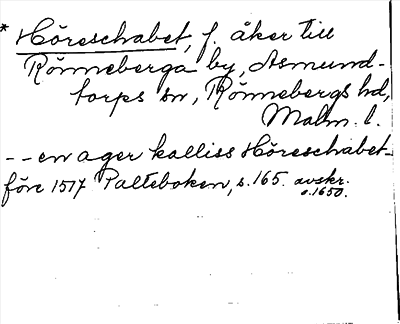 * Höreschabet, f. åker till
Rönneberga by, Asmund-
torps sn, Rönnebergs hd,
Malm. l.
-- en ager kalliss Höreschabet -
före 1517 Palteboken, s. 165. avskr.
o. 1650.